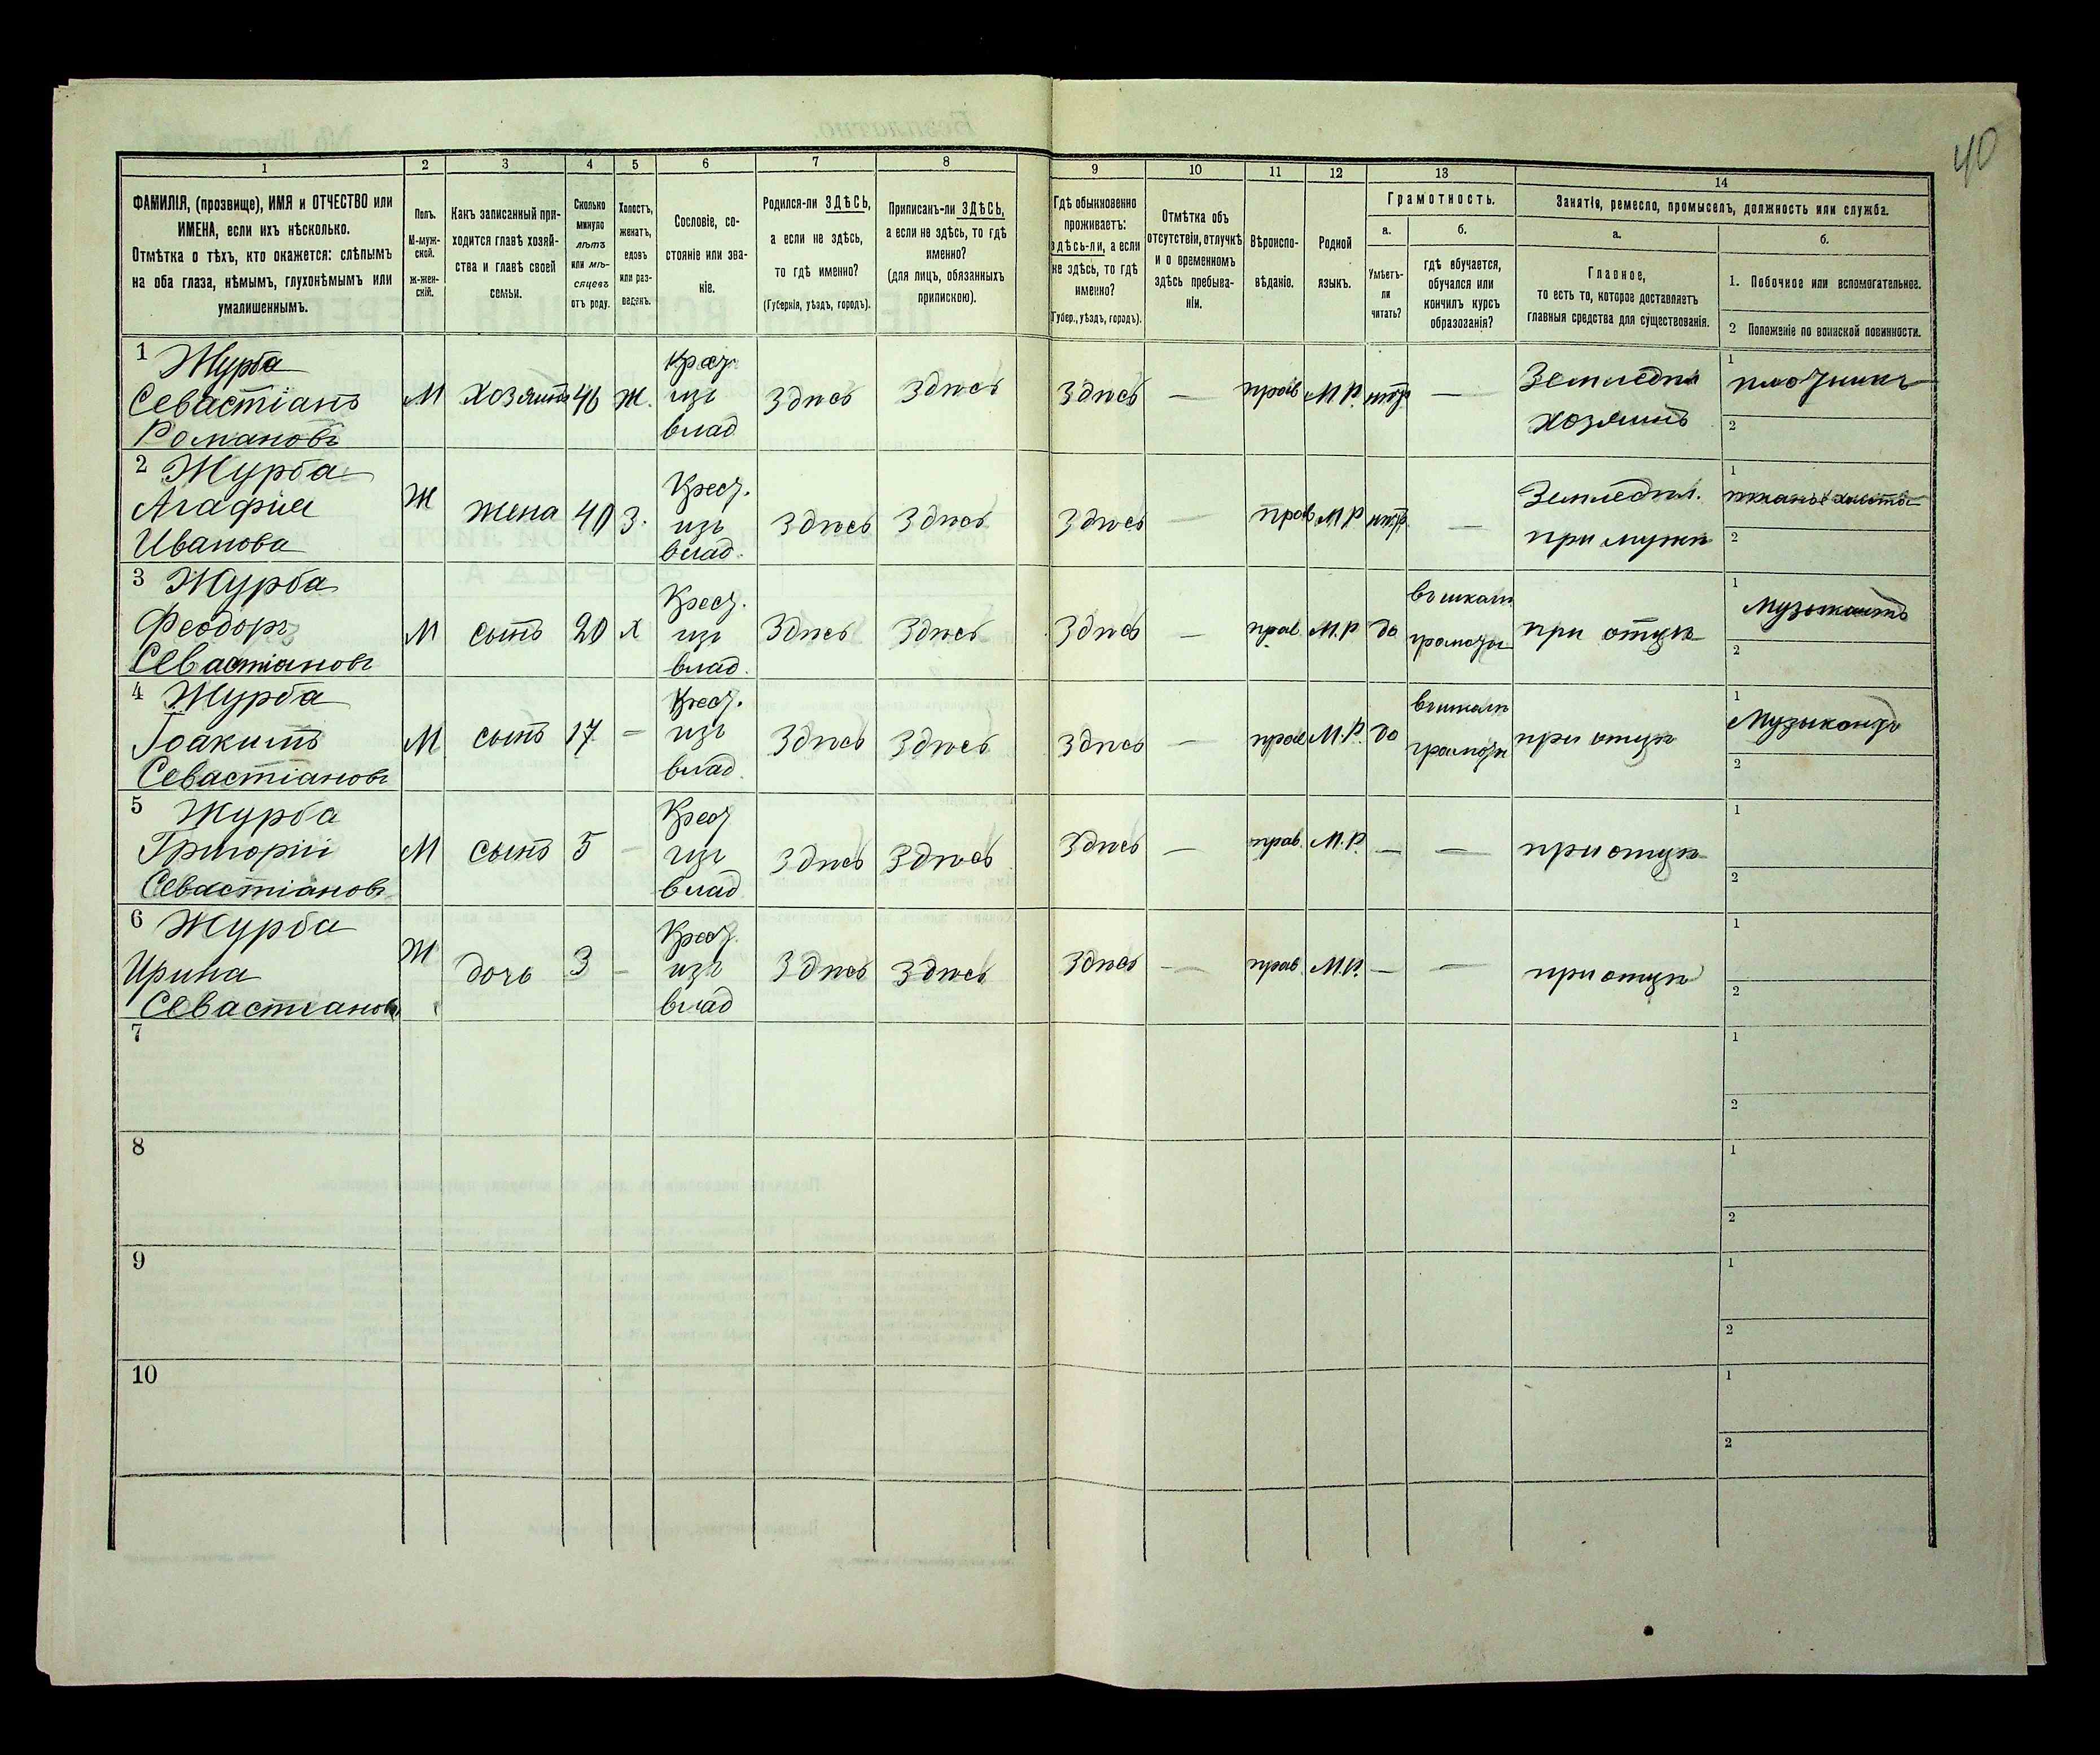 40
1 2 3 4 5 6 7 8 9 10 11 12 13 14
ФАМИЛІЯ, (прозвище), ИМЯ и ОТЧЕСТВО или
ИМЕНА, если ихъ нѣсколько.
Отмѣтка о тѣхъ, кто окажется: слѣпымъ
на оба глаза, нѣмымъ, глухонѣмымъ или
умалишеннымъ.
Полъ.
М-муж-
ской.
Ж-жен-
скій.
Какъ записанный при-
ходится главѣ хозяй-
ства и главѣ своей
семьи.
Сколько
минуло
лѣтъ
или мѣ-
сяцевъ
отъ роду.
Холостъ,
женатъ,
вдовъ
или раз-
веденъ.
Сословіе, со-
стояніе или зва-
ніе.
Родился-ли ЗДѢСЬ,
а если не здѣсь,
то гдѣ именно?
(Губернія, уѣздъ, городъ).
Приписанъ-ли ЗДѢСЬ,
а если не здѣсь, то гдѣ
именно?
(для лицъ, обязанныхъ
припискою).
Гдѣ обыкновенно
проживаетъ:
здѣсь-ли, а если
не здѣсь, то гдѣ
именно?
(Губер., уѣздъ, городъ).
Отмѣтка объ
отсутствіи, отлучкѣ
и о временномъ
здѣсь пребыва-
ніи.
Вѣроиспо-
вѣданіе.
Родной
языкъ.
Грамотность.
а.
Умѣетъ-
ли
читать?
б.
гдѣ обучается,
обучался или
кончилъ курсъ
образованія?
Занятія, ремесло, промыселъ, должность или служба.
а.
Главное,
то есть то, которое доставляетъ
главныя средства для существованія.
б.
1. Побочное или вспомогательное.
2 Положеніе по воинской повинности.
1 Журба
Севастіанъ
Романовъ
М хозяинъ 46 ж.
Крест.
изъ
влад
Здѣсь Здѣсь Здѣсь — прав М.Р. нѣтъ —
Земледѣл
хозяинъ
1 плотникъ
2
2 Журба
Агафия
Иванова
Ж жена 40 з.
Крест.
изъ
влад.
Здѣсь Здѣсь Здѣсь — прав М.Р нѣтъ —
Земледѣл.
при мужѣ
1 тканье холста
2
3 Журба
Феодоръ
Севастіановъ
М сынъ 20 х
Крест.
изъ
влад.
Здѣсь Здѣсь Здѣсь — прав. М.Р да
въ школѣ
грамоты
при отцѣ
1 Музыкантъ
2
4 Журба
Іоакимъ
Севастіановъ
М сынъ 17 —
Крест.
изъ
влад.
Здѣсь Здѣсь Здѣсь — прав М.Р. да
въ школѣ
грамоты
при отцѣ
1 Музыкантъ
2
5 Журба
Григорій
Севастіановъ
М сынъ 5 —
Крест
изъ
влад
Здѣсь Здѣсь Здѣсь — прав. М.Р. — —
при отцѣ
1
2
6 Журба
Ирина
Севастианова
Ж дочь 3 —
Крест.
изъ
влад
Здѣсь Здѣсь Здѣсь — прав. М.Р. — —
при отцѣ
1
2
7
1
2
8
1
2
9
1
2
10
1
2